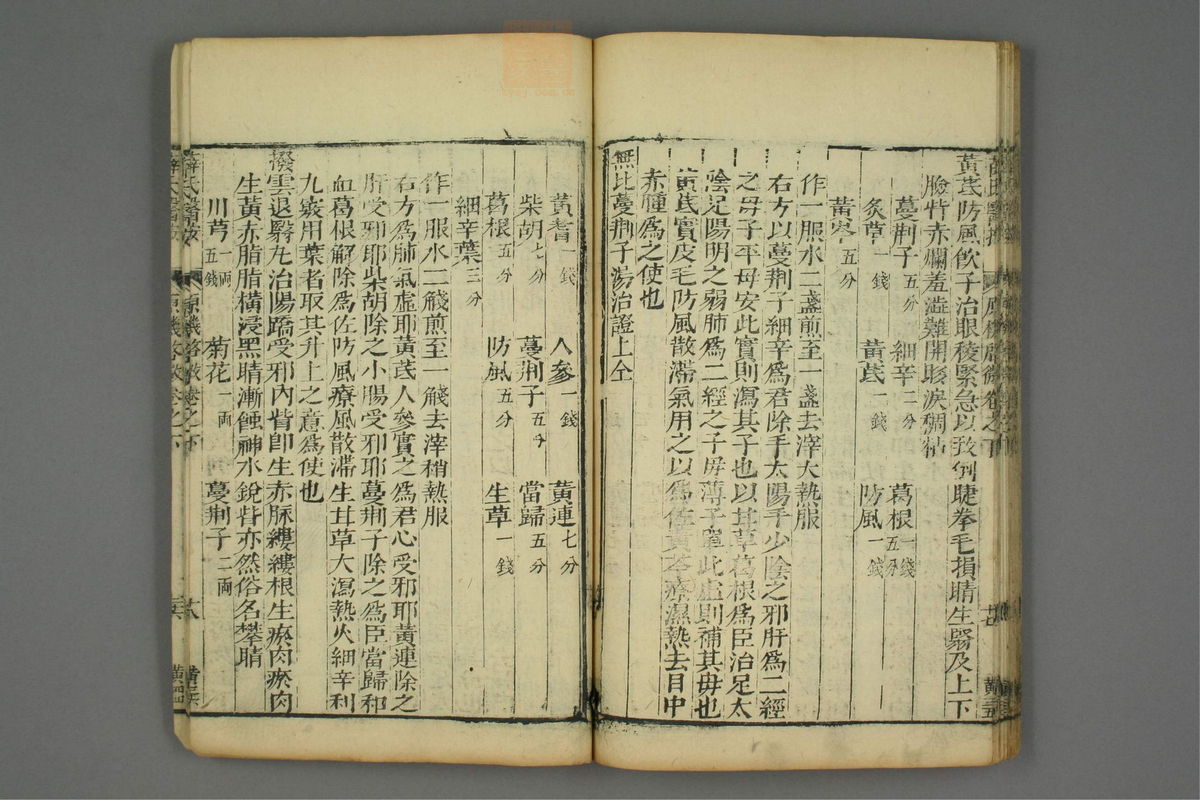 黃芪防風飮子治眼稜緊急以致倒睫拳毛損睛生翳及上下
臉眥赤爛羞澁難開眵淚稠粘
蔓荆子五分 細辛二分 葛根一錢五分
炙草一錢 黃芪一錢 防風一錢
黃芩五分
作一服水二盞煎至一盞去滓大熱服
右方以蔓荆子細辛爲君除手太陽手少陰之邪肝爲二經
之母子平母安此實則瀉其子也以甘草葛根爲臣治足太
陰足陽明之弱肺爲二經之子母薄子單此虛則補其母也
黃芪實皮毛防風散滯氣用之以爲佐黃芩療濕熱去目中
赤腫爲之使也
無比蔓荆子湯治證上仝
黃耆一錢 人參一錢 黃連七分
柴胡七分 蔓荆子五分 當歸五分
葛根五分 防風五分 生草一錢
細辛葉三分
作一服水二餞煎至一餞去滓稍熱服
右方爲肺氣虛耶黃芪人參實之爲君心受邪耶黃連除之
肝受邪耶柴胡除之小腸受邪耶蔓荆子除之爲臣當歸和
血葛根解除爲佐防風療風散滯生甘草大瀉熱火細辛利
九竅用葉者取其升上之意爲使也
撥雲退翳丸治陽蹻受邪內眥卽生赤脉縷縷根生瘀肉瘀肉
生黃赤脂脂橫浸黑睛漸蝕神水銳眥亦然俗名攀睛
川芎一両五錢 菊花一両 蔓荆子二両
薛氏醫按 原機啓微卷之下